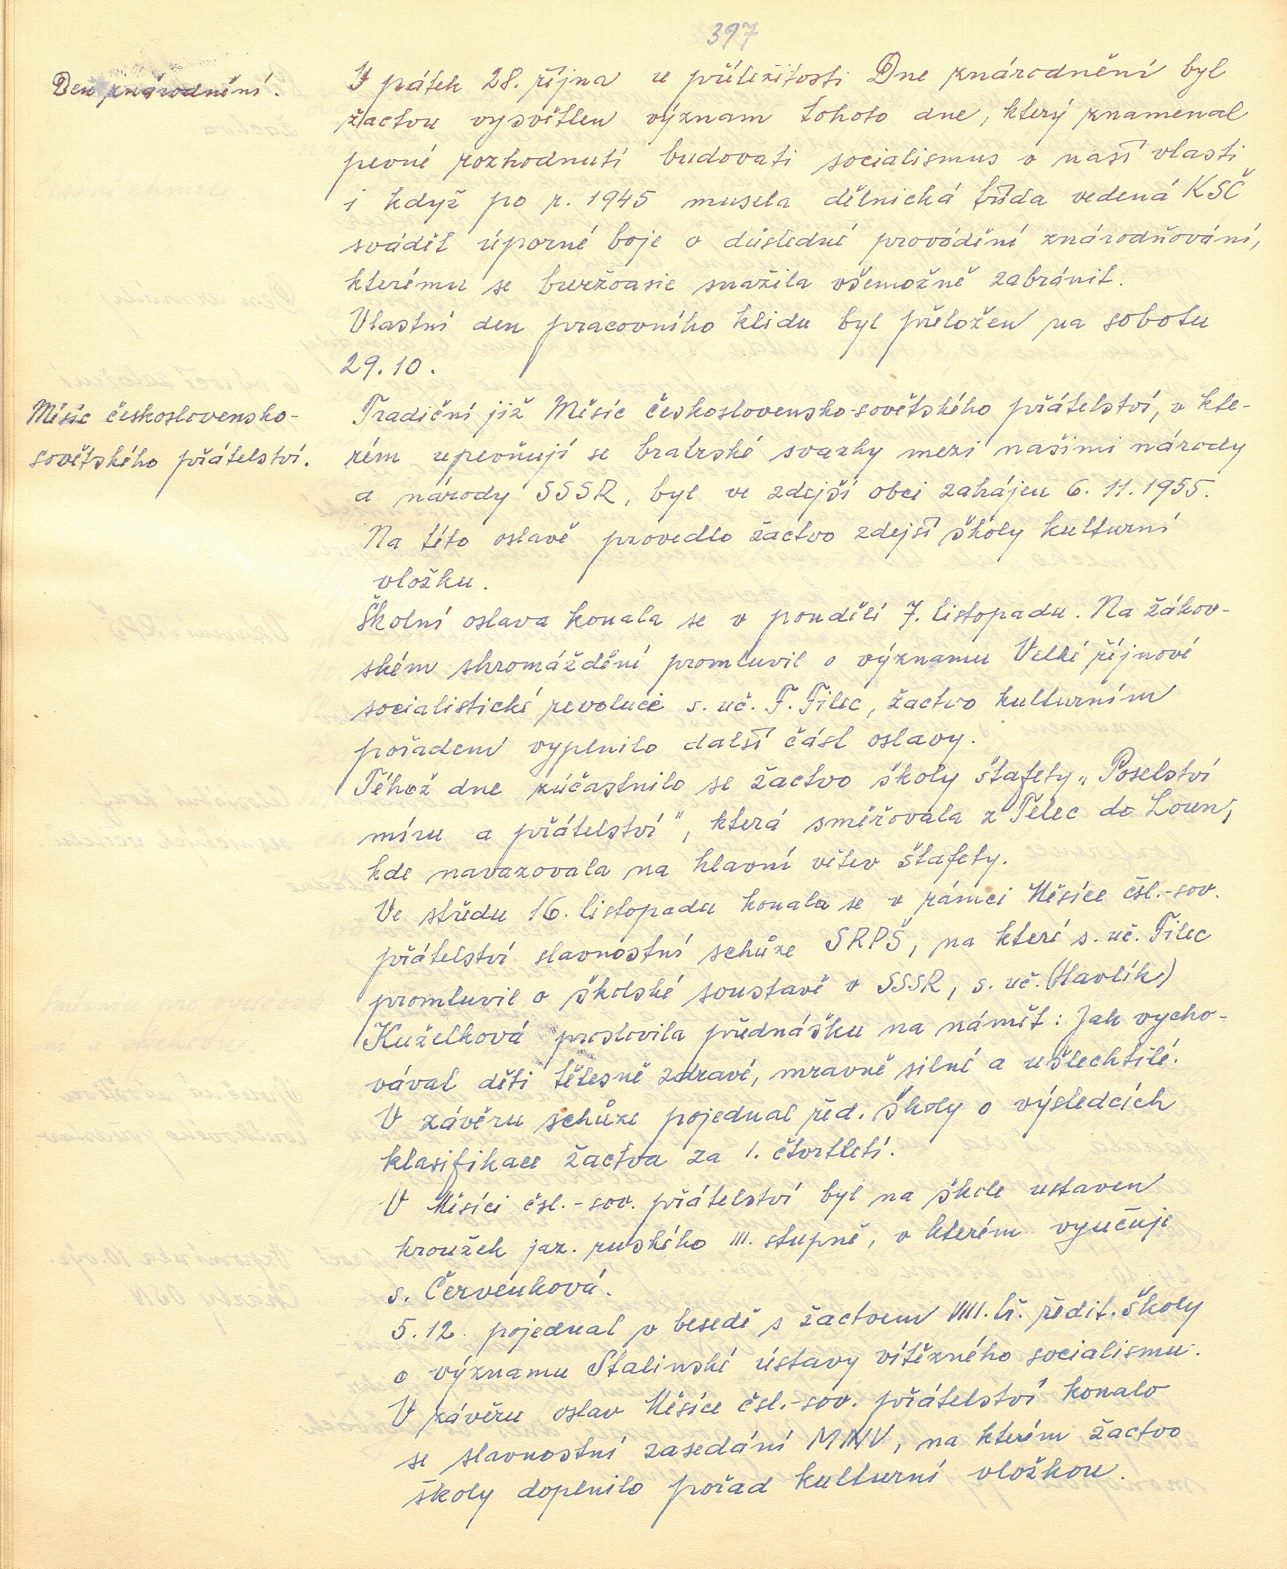 397
Den znárodnění.
V pátek 28. října u příležitosti Dne znárodnění byl
žactvu vysvětlen význam tohoto dne, který znamenal
pevné rozhodnutí budovati socialismus v naší vlasti
i když po r. 1945 musela dělnická třída vedená KSČ
svádět úporné boje o důsledné provádění znárodňování,
kterému se buržoasie snažila všemožně zabránit.
Vlastní den pracovního klidu byl přeložen na sobotu
29.10.
Měsíc československo-
sovětského přátelství.
Tradiční již Měsíc československo-sovětského přátelství, v kte-
rém upevňují se bratrské svazky mezi našimi národy
a národy SSSR, byl ve zdejší obci zahájen 6. 11. 1955.
Na této oslavě provedlo žactvo zdejší školy kulturní
vložku.
Školní oslava konala se v pondělí 7. listopadu. Na žákov-
ském shromáždění promluvil o významu Velké říjnové
socialistické revoluce s. uč. F. Filec, žactvo kulturním
pořadem vyplnilo další část oslavy.
Téhož dne zúčastnilo se žactvo školy štafety „Poselství
míru a přátelství", která směřovala z Telec do Loun,
kde navazovala na hlavní větev štafety.
Ve středu 16. listopadu konala se v rámci Měsíce čsl.-sov.
přátelství slavnostní schůze SRPŠ, na které s. uč. Filec
promluvil o školské soustavě v SSSR, s. uč. (Havlík)
Kuželková proslovila přednášku na námět: Jak vycho-
vávat děti tělesně zdravé, mravně silné a ušlechtilé.
V závěru schůze pojednal řed. školy o výsledcích
klasifikace žactva za 1. čtvrtletí.
V Měsíci čsl.-sov. přátelství byl na škole ustaven
kroužek jaz. ruského III. stupně, v kterém vyučuje
s. Červenková.
5.12. pojednal v besedě s žactvem VIII. tř. ředit. školy
o významu Stalinské ústavy vítězného socialismu.
V závěru oslav Měsíce čsl.-sov. přátelství konalo
se slavnostní zasedání MNV, na kterém žactvo
školy doplnilo pořad kulturní vložkou.